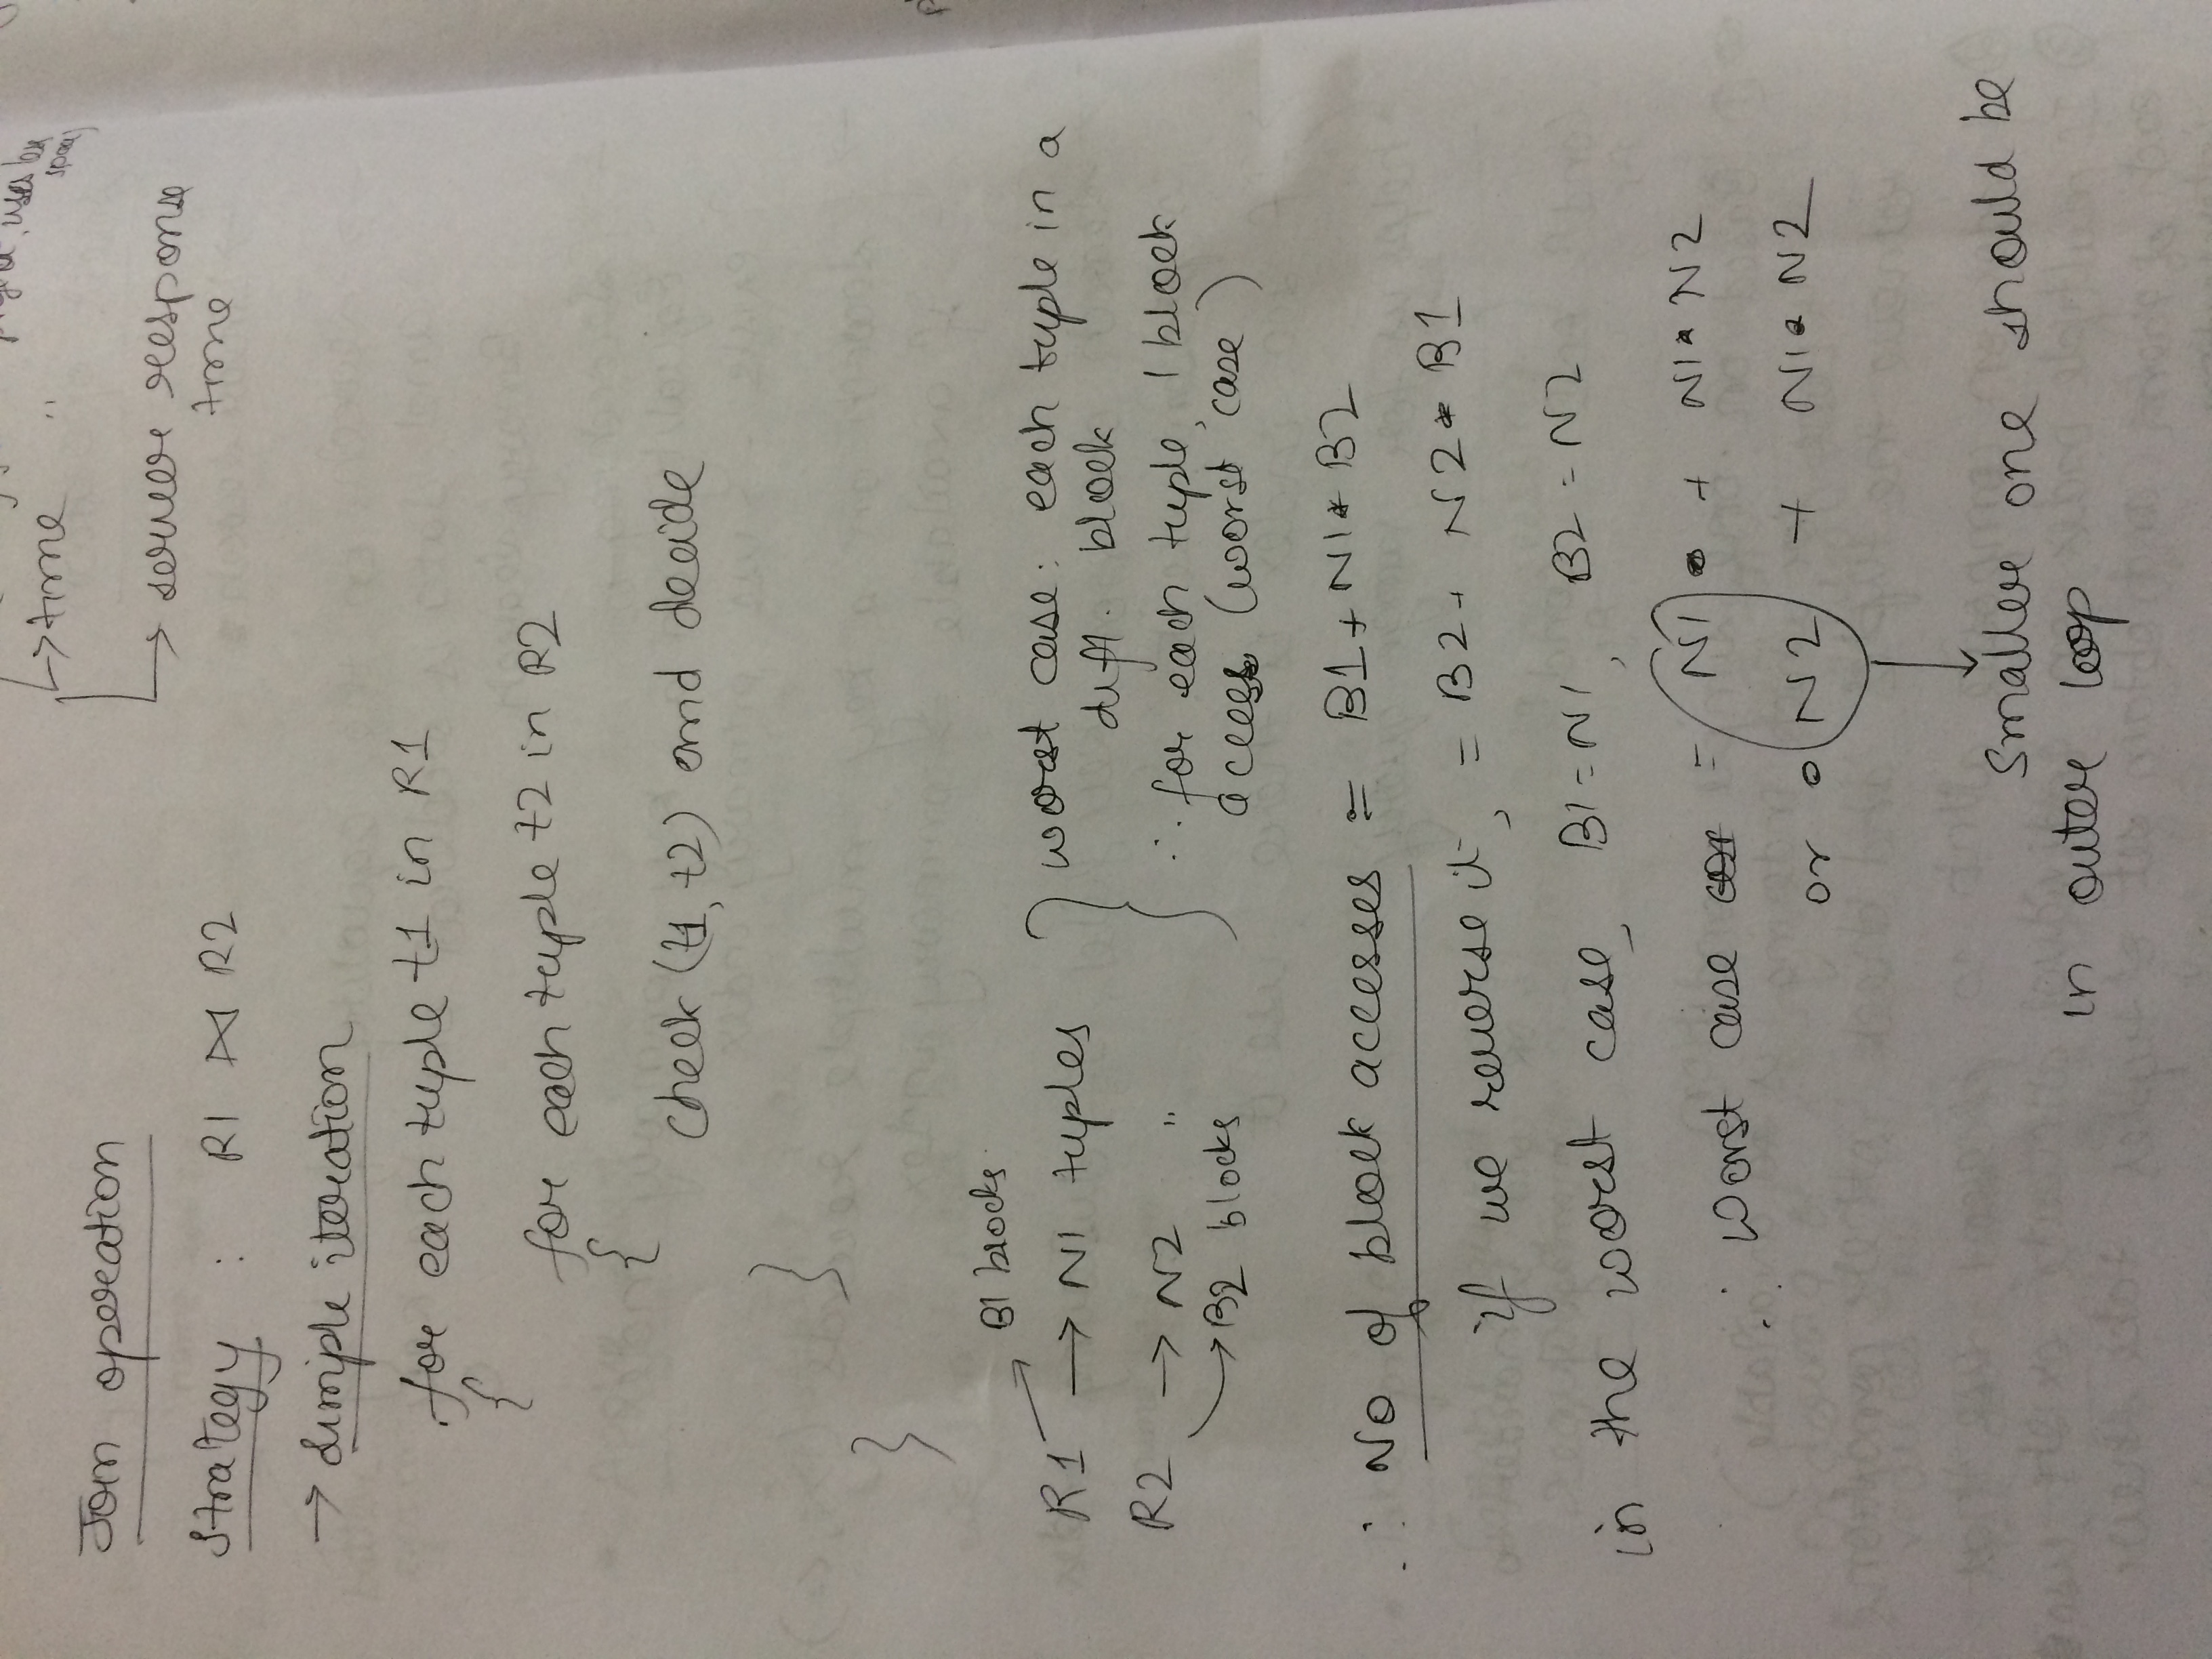 uses
→ time "
→ server response
time
Join operation
Strategy : R1 ⋈ R2
→ Simple iteration
for each tuple t1 in R1
{
for each tuple t2 in R2
{
check (t1, t2) and decide
}
}
B1 blocks
R1 → N1 tuples
R2 → N2 "
→ B2 blocks
} worst case: each tuple in a
diff. block
∴ for each tuple, 1 block
access (worst case)
∴ No of block accesses = B1 + N1 * B2
if we reverse it, = B2 + N2 * B1
in the worst case, B1 = N1, B2 = N2
∴ Worst case = N1 + N1 * N2
or N2 + N1 * N2
Smaller one should be
in outer loop